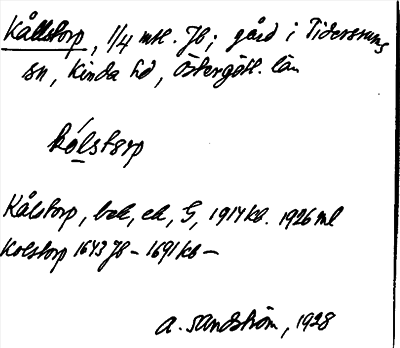 Kållstorp, 1/4 mtl. Jb; gård i Tidersrums
sn, Kinda hd, Östergötl. län
kólstɘrp
Kålstorp, bok, ek, G, 1914 kb. 1926 ml
Kolstorp 1643 Jb – 1691 kb –
A. Sandström, 1928